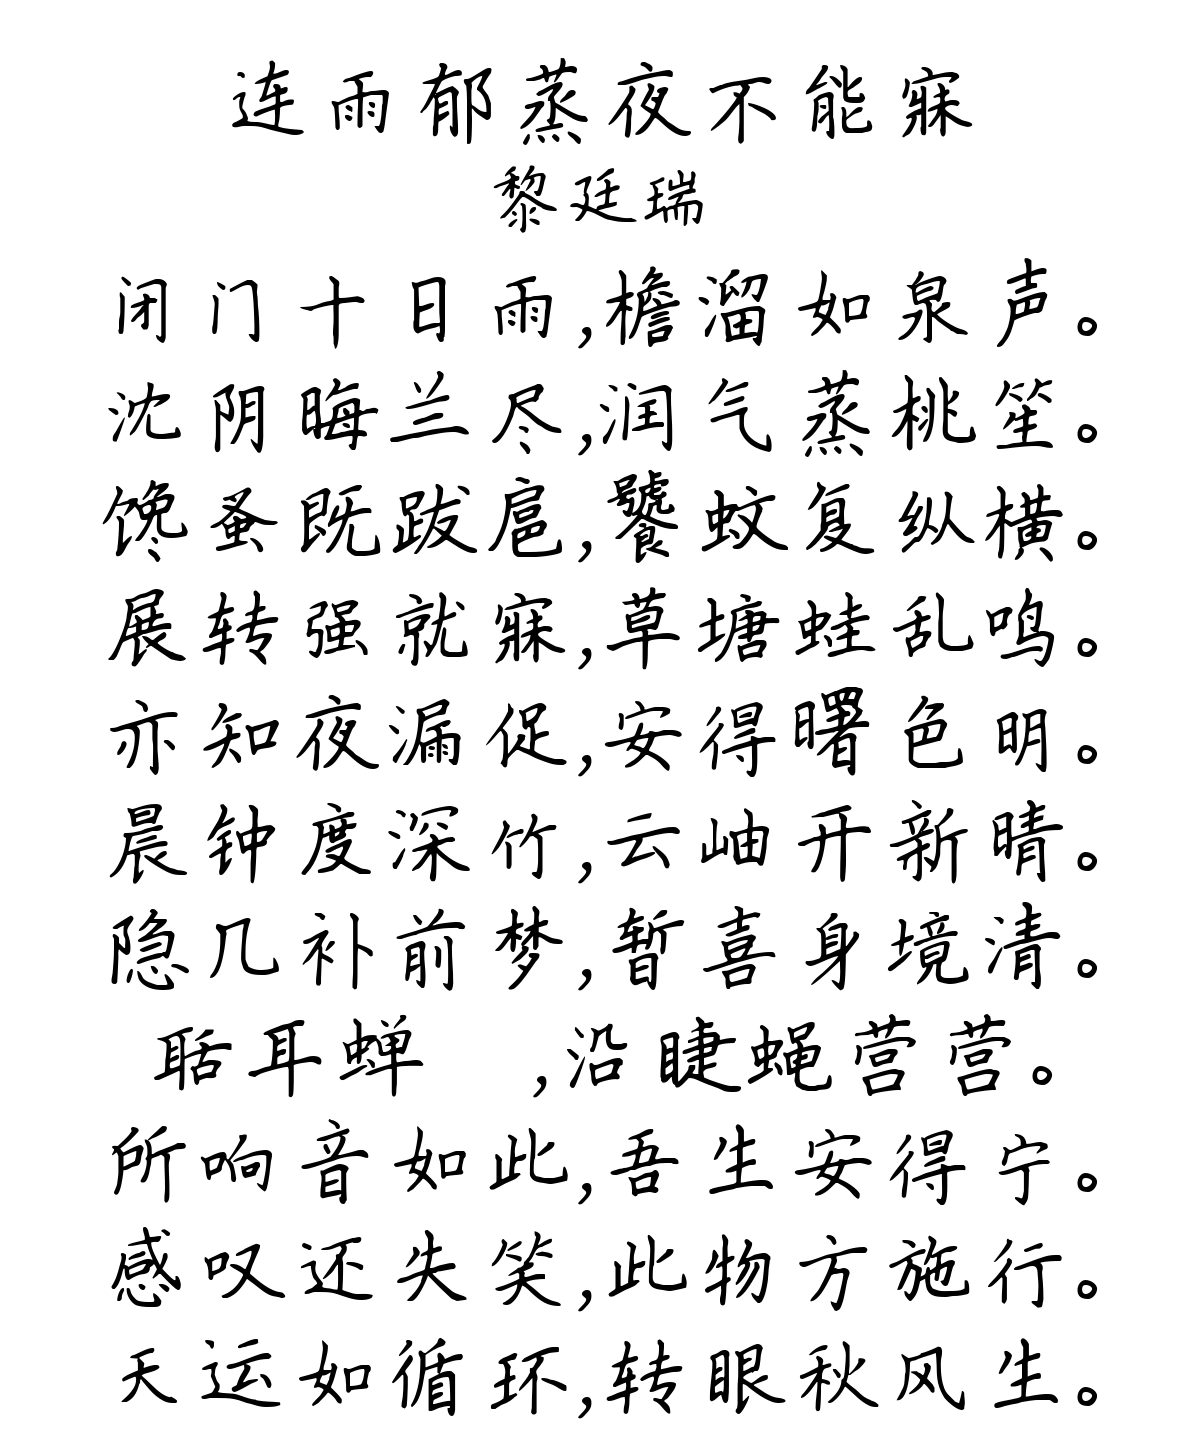 连雨郁蒸夜不能寐
黎廷瑞
闭门十日雨,檐溜如泉声。
沈阴晦兰尽,润气蒸桃笙。
馋蚤既跋扈,饕蚊复纵横。
展转强就寐,草塘蛙乱鸣。
亦知夜漏促,安得曙色明。
晨钟度深竹,云岫开新晴。
隐几补前梦,暂喜身境清。
聒耳蝉 ,沿睫蝇营营。
所响音如此,吾生安得宁。
感叹还失笑,此物方施行。
天运如循环,转眼秋风生。